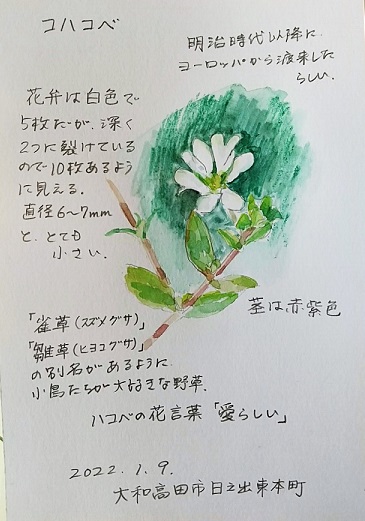 コハコベ
明治時代以降に
ヨーロッパから渡来した
らしい.
花弁は白色で
5枚だが、深く
2つに裂けている
ので10枚あるよう
に見える.
直径6~7mm
と、とても
小さい.
茎は赤紫色
「雀草(スズメグサ)」
「雛草(ヒヨコグサ)」
の別名があるように.
小鳥たちが大好きな野草.
ハコベの花言葉「愛らしい」
2022.1.9.
大和高田市日之出東本町